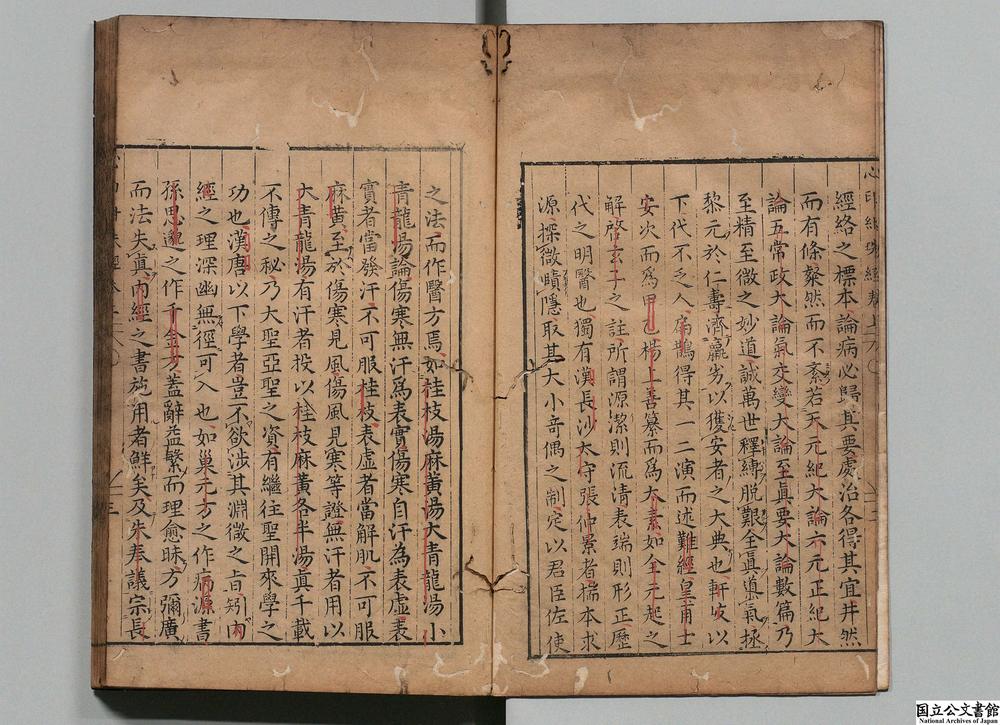 心印紺珠經卷上
經絡之標本論病必歸其要處治各得其宜井然
而有條粲然而不紊若天元紀大論六元正紀大
論五常政大論氣交變大論至眞要大論數篇乃
至精至微之妙道誠萬世釋縛脫艱全眞導氣拯
黎元於仁壽濟羸劣以獲安者之大典也軒岐以
下代不乏人扁鵲得其一二演而述難經皇甫士
安次而爲甲乙楊上善纂而爲大素如全元起之
解啓玄子之註所謂源潔則流清表端則形正歷
代之明醫也獨有漢長沙太守張仲景者揣本求
源探微賾隱取其大小奇偶之制定以君臣佐使
之法而作醫方焉如桂枝湯麻黄湯大青龍湯小
青龍湯論傷寒無汗爲表實傷寒自汗為表虛表
實者當發汗不可服桂枝表虛者當解肌不可服
麻黄至於傷寒見風傷風見寒等證無汗者用以
大青龍湯有汗者投以桂枝麻黄各半湯眞千載
不傳之秘乃大聖亞聖之資有繼往聖開來學之
功也漢唐以下學者豈不欲涉其淵微之旨矧內
經之理深幽無徑可入也如巢元方之作病源書
孫思邈之作千金方蓋辭益繁而理愈昧方彌廣
而法失眞內經之書施用者鮮矣及朱奉議宗長
国立公文書館
National Archives of Japan